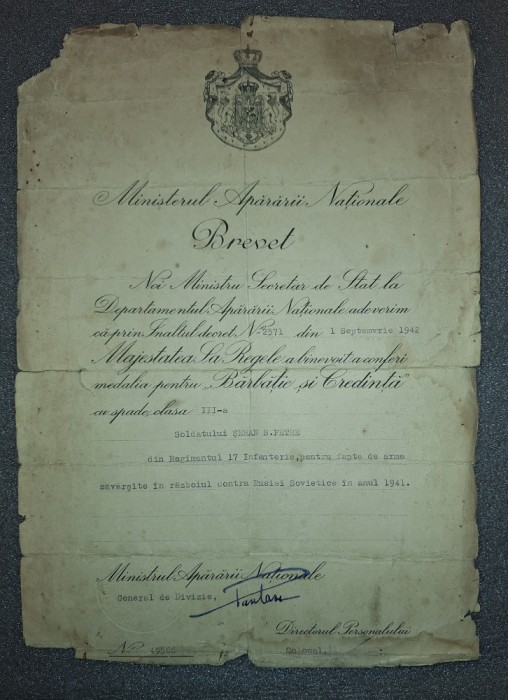 Ministerul Apărării Naționale
Brevet
Noi Ministru Secretar de Stat la
Departamentul Apărării Naționale adeverim
că prin Înaltul decret No. 2571 din 1 Septemvrie 1942
Majestatea Sa Regele a binevoit a conferi
medalia pentru „Bărbăție și Credință”
cu spade, clasa III-a
Soldatului ȘERAN S.PETRE
din Regimentul 17 Infanterie, pentru fapte de arme
săvârșite în războiul contra Rusiei Sovietice în anul 1941.
Ministrul Apărării Naționale
General de Divizie,
Directorul Personalului
No.
Colonel,